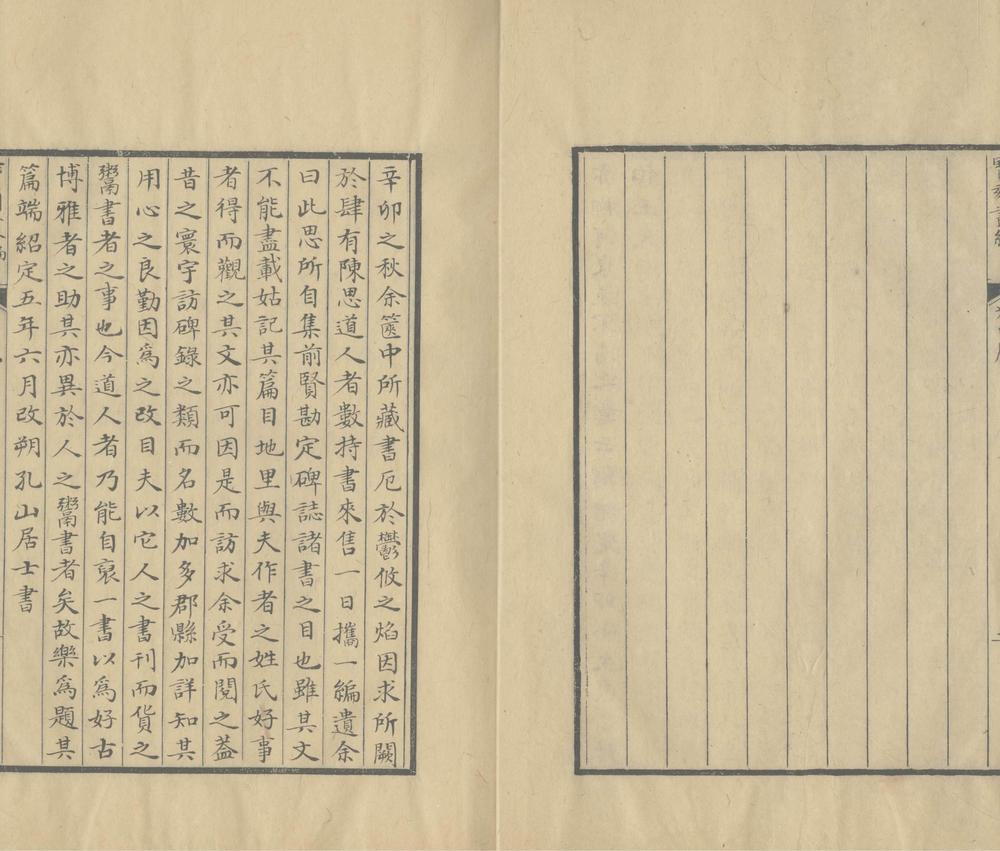 寶刻叢編
辛卯之秋余篋中所藏書厄於鬱攸之焰因求所闕
於肆有陳思道人者數持書來售一日攜一編遺余
曰此思所自集前賢勘定碑誌諸書之目也雖其文
不能盡載姑記其篇目地里與夫作者之姓氏好事
者得而觀之其文亦可因是而訪求余受而閱之葢
昔之寰宇訪碑錄之類而名數加多郡縣加詳知其
用心之良勤因爲之改目夫以它人之書刊而貨之
鬻書者之事也今道人者乃能自裒一書以爲好古
博雅者之助其亦異於人之鬻書者矣故樂爲題其
篇端紹定五年六月改朔孔山居士書